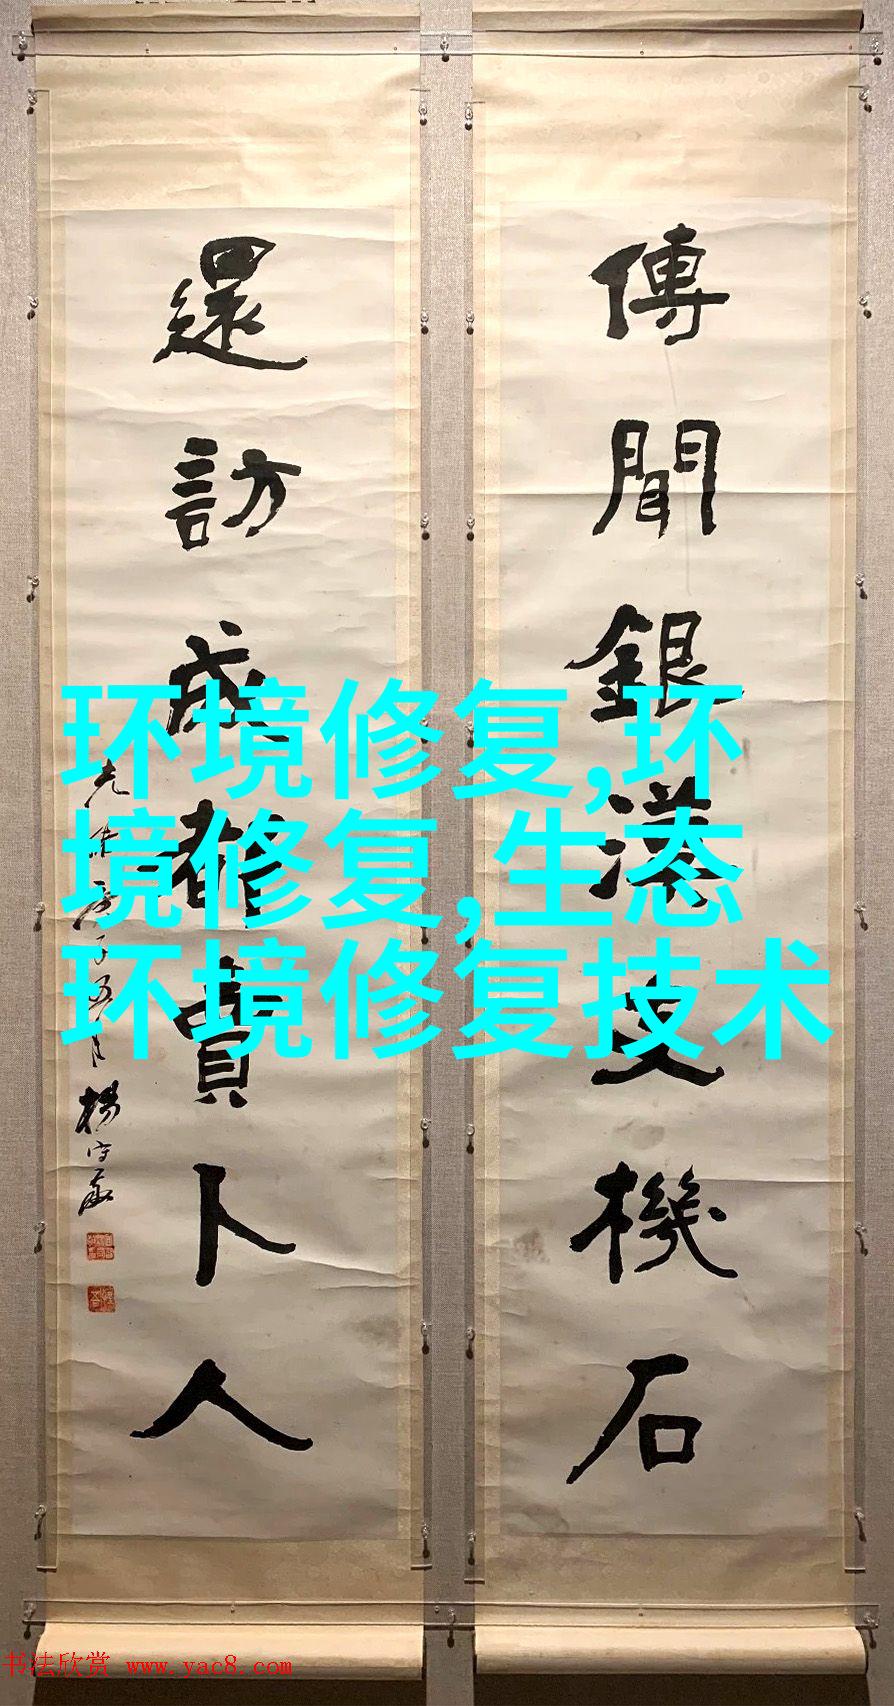 傳聞銀漢支機石
還訪成都賣卜人
光緒庚子五月楊守敬
环境修复,环
境修复,生态
环境修复技术
书法欣赏 www.yac8.com